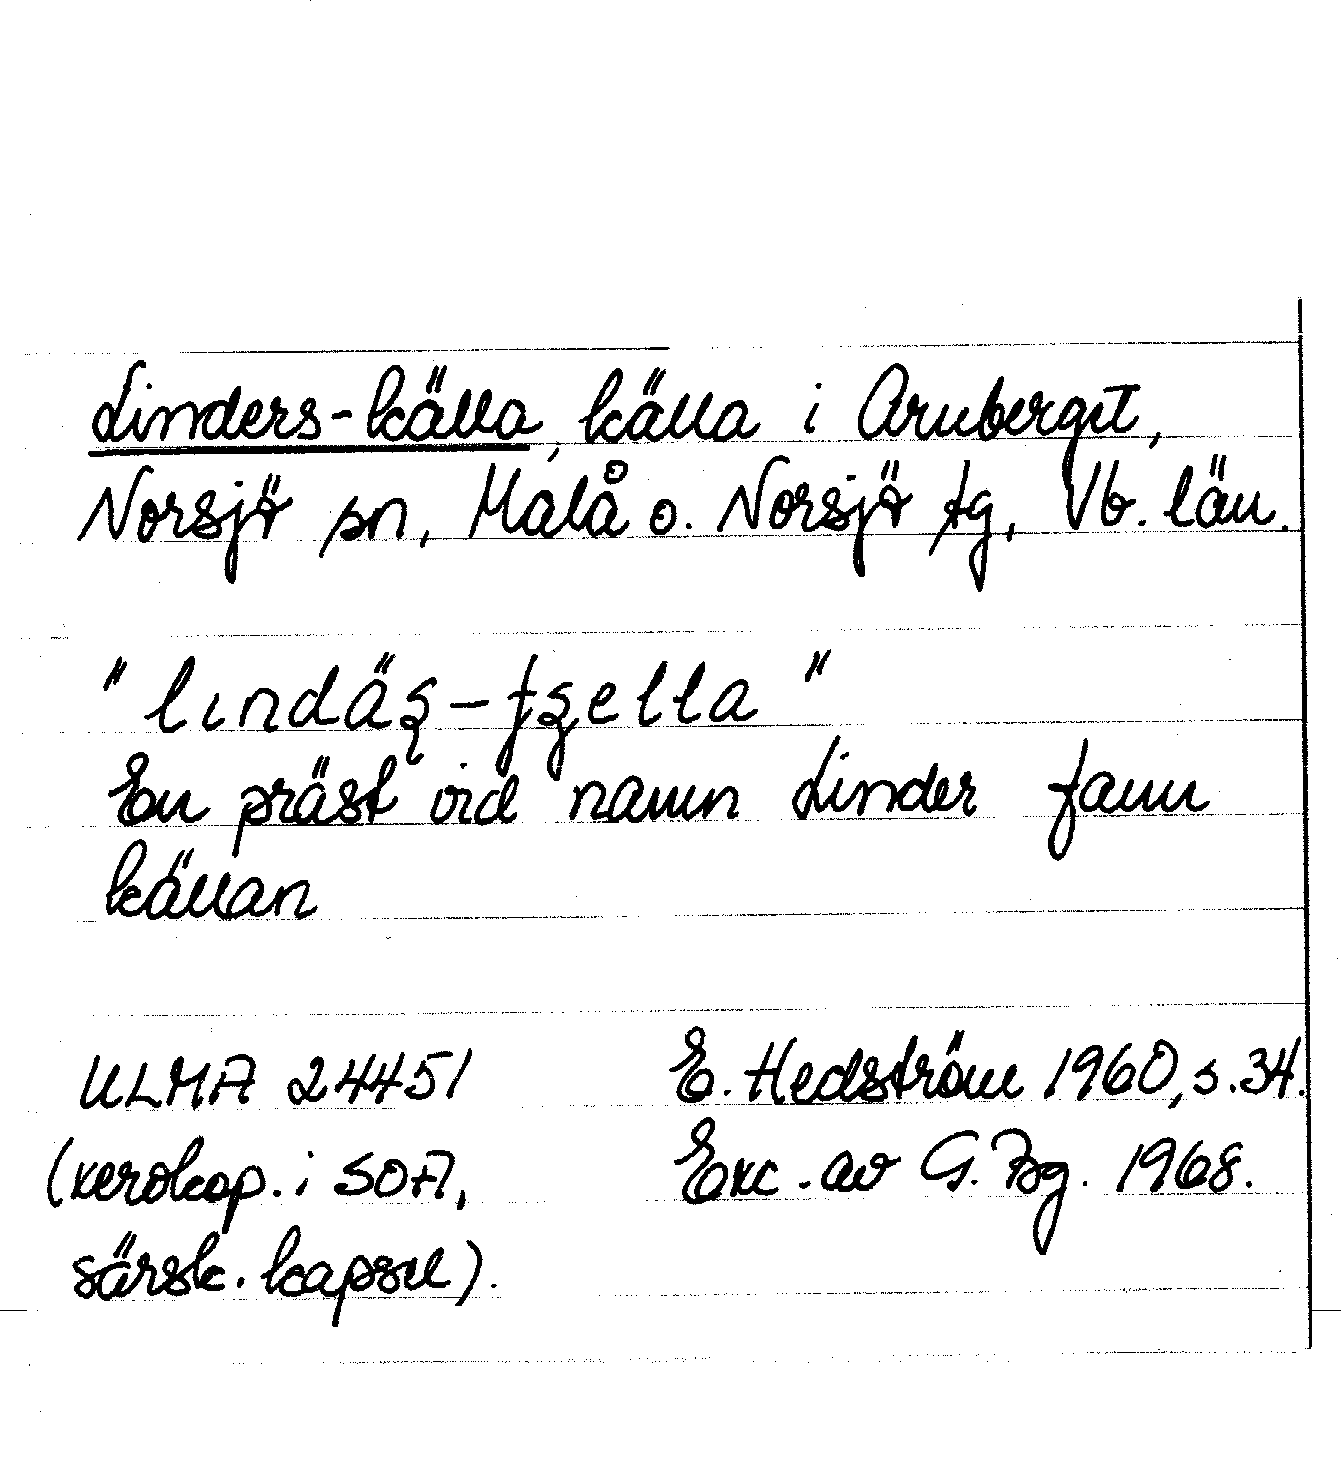 Linders-källa, källa i Arnberget,
Norsjö sn, Malå o. Norsjö tg, Vb. län.
"lındäȿ-tȿella"
En präst vid namn Linder fann
källan
ULMA 24451
E. Hedström 1960, s. 34.
(xerokop. i SOA,
Exc. av G. Bg. 1968.
särsk. kapsel).